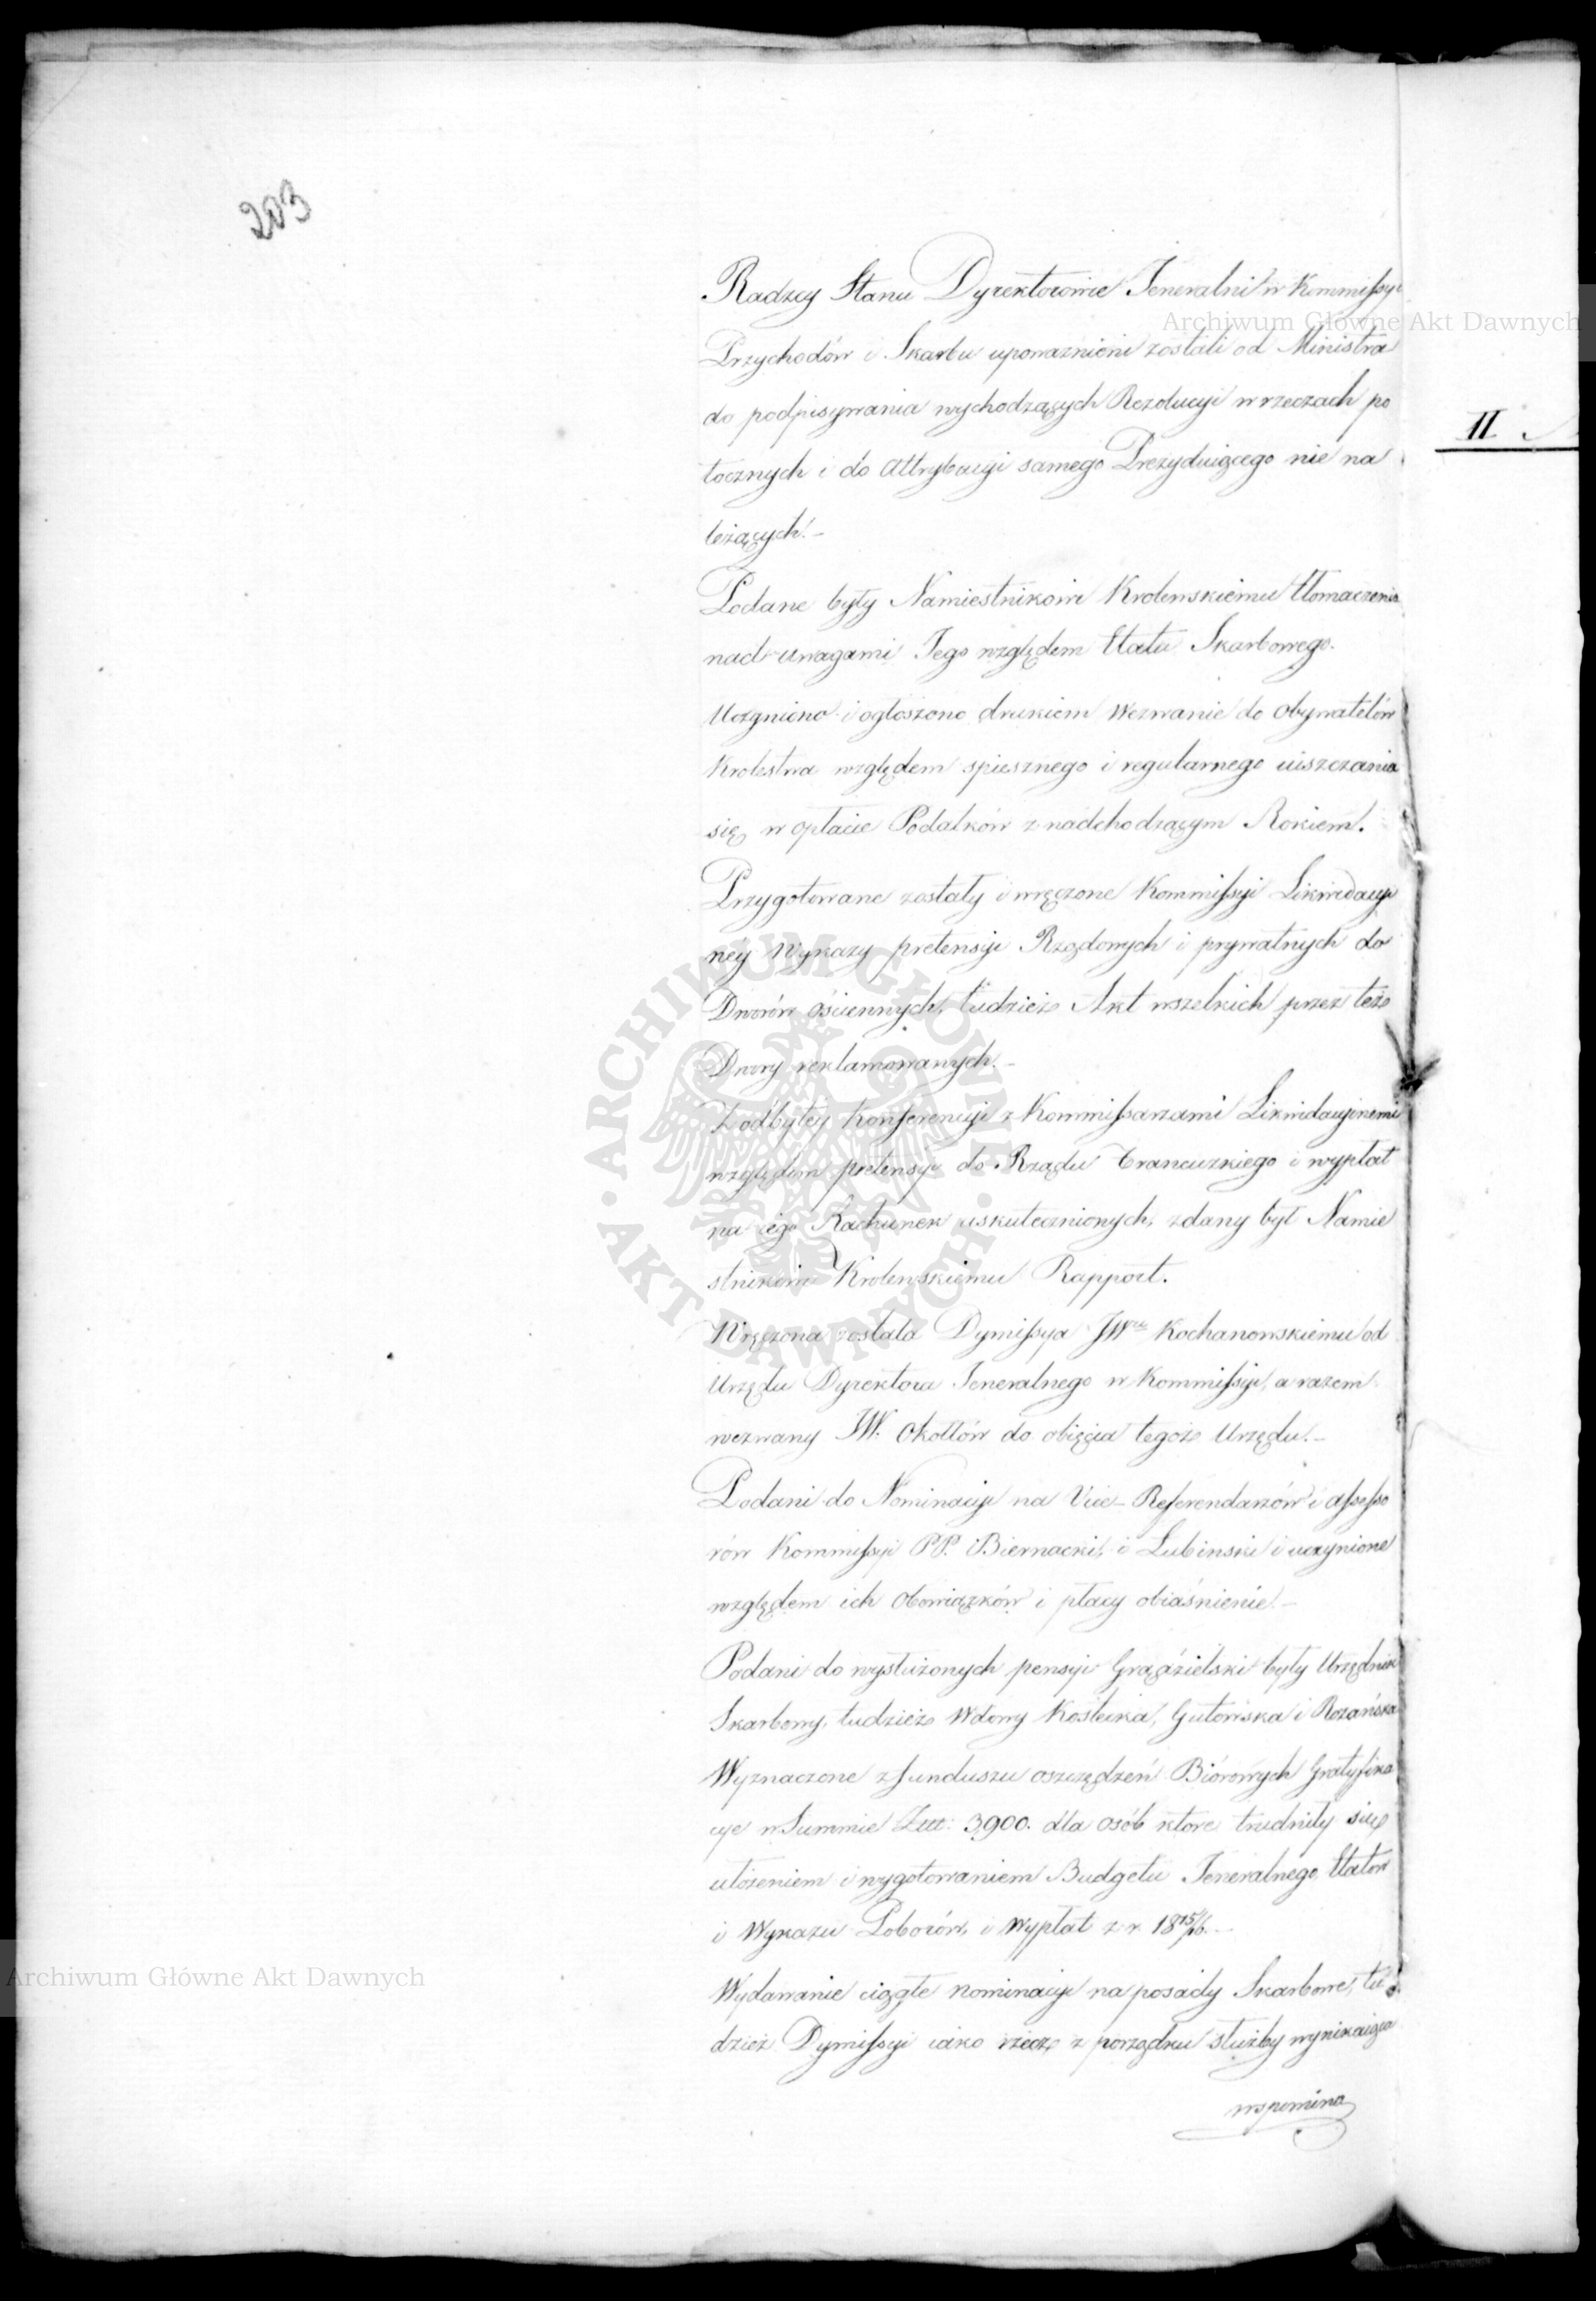 203
Radzcy Stanu Dyrektorowie Jeneralni w Kommissyi
Przychodów i Skarbu upoważnieni zostali od Ministra
do podpisywania wychodzących Rezolucyi w rzeczach po
tocznych i do Attrybucyi samego Prezyduiącego nie na
leżących.-
Podane były Namiestnikowi Krolewskiemu tłomaczenia
nad uwagami Jego względem Etatu Skarbowego.
Uczyniono i ogłoszono drukiem Wezwanie do Obywatelów
Krolestwa względem spiesznego i regularnego uiszczania
się w opłacie Podatków z nadchodzącym Rokiem.
Przygotowane zostały i wręczone Kommissyi Likwidacyi
néy Wykazy pretensyi Rządowych i prywatnych do
Dworów ościennych, tudzież Akt wszelkich przez też
Dwory reklamowanych.-
Z odbytey Konferencyi z Kommissarzami Likwidacyinemi
względem pretensyi do Rządu Francuzkiego i wypłat
na iego Rachunek uskutecznionych, zdany był Namie
stnikowi Krolewskiemu Rapport.
Wręczona została Dymissya JWmu Kochanowskiemu od
Urzędu Dyrektora Jeneralnego w Kommissyi, a razem
wezwany JW. Okołłów do obięcia tegoż Urzędu.-
Podani do Nominacyi na Vice-Referendarzów i Assesso
rów Kommissyi PP. Biernacki, i Lubinski i uczynione
względem ich Obowiązków i płacy obiaśnienie.-
Podani do wysłużonych pensyi Grądzielski były Urzędnik
Skarbowy, tudzież Wdowy Kostecka, Gutowska i Rozańska
Wyznaczone z funduszu oszczędzeń Biórowych Gratyfika
cye w Summie Złł: 3,900. dla osób ktore trudniły się
ułożeniem i wygotowaniem Budgetu Jeneralnego, Etatow
i Wykazu Poborów, i Wypłat z r. 1815/16.-
Wydawanie ciągłe nominacyi na posady Skarbowe, tu
dzież Dymissyi iako rzecz z porządku służby wynikaiąca
wspomina
II
Archiwum Główne Akt Dawnych
Archiwum Główne Akt Dawnych
ARCHIWUM GŁÓWNE AKT DAWNYCH